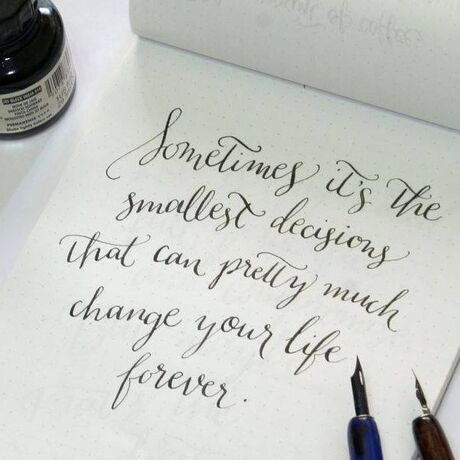 Sometimes it's the
smallest decisions
that can pretty much
change your life
forever.